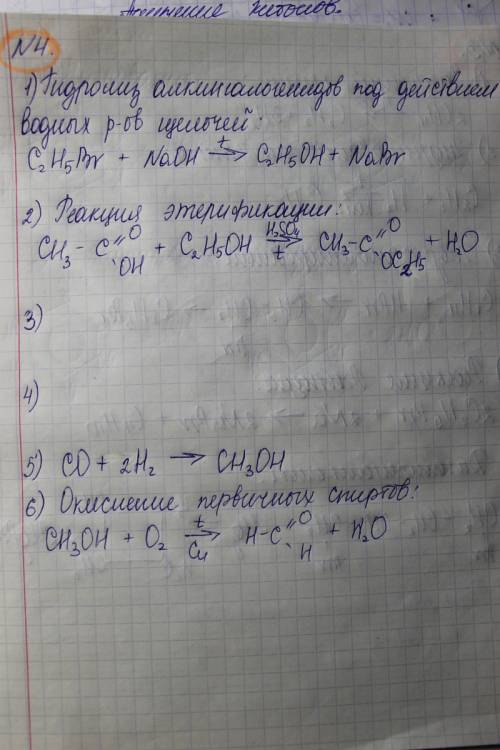 №4.
1) Гидролиз алкилгалогенидов под действием
водных р-ов щелочей:
C₂H₅Br + NaOH →(t) C₂H₅OH + NaBr
2) Реакция этерификации:
CH₃-C(=O)OH + C₂H₅OH →(H₂SO₄, t) CH₃-C(=O)OC₂H₅ + H₂O
3)
4)
5) CO + 2H₂ → CH₃OH
6) Окисление первичных спиртов:
CH₃OH + O₂ →(t, Cu) H-C(=O)H + H₂O